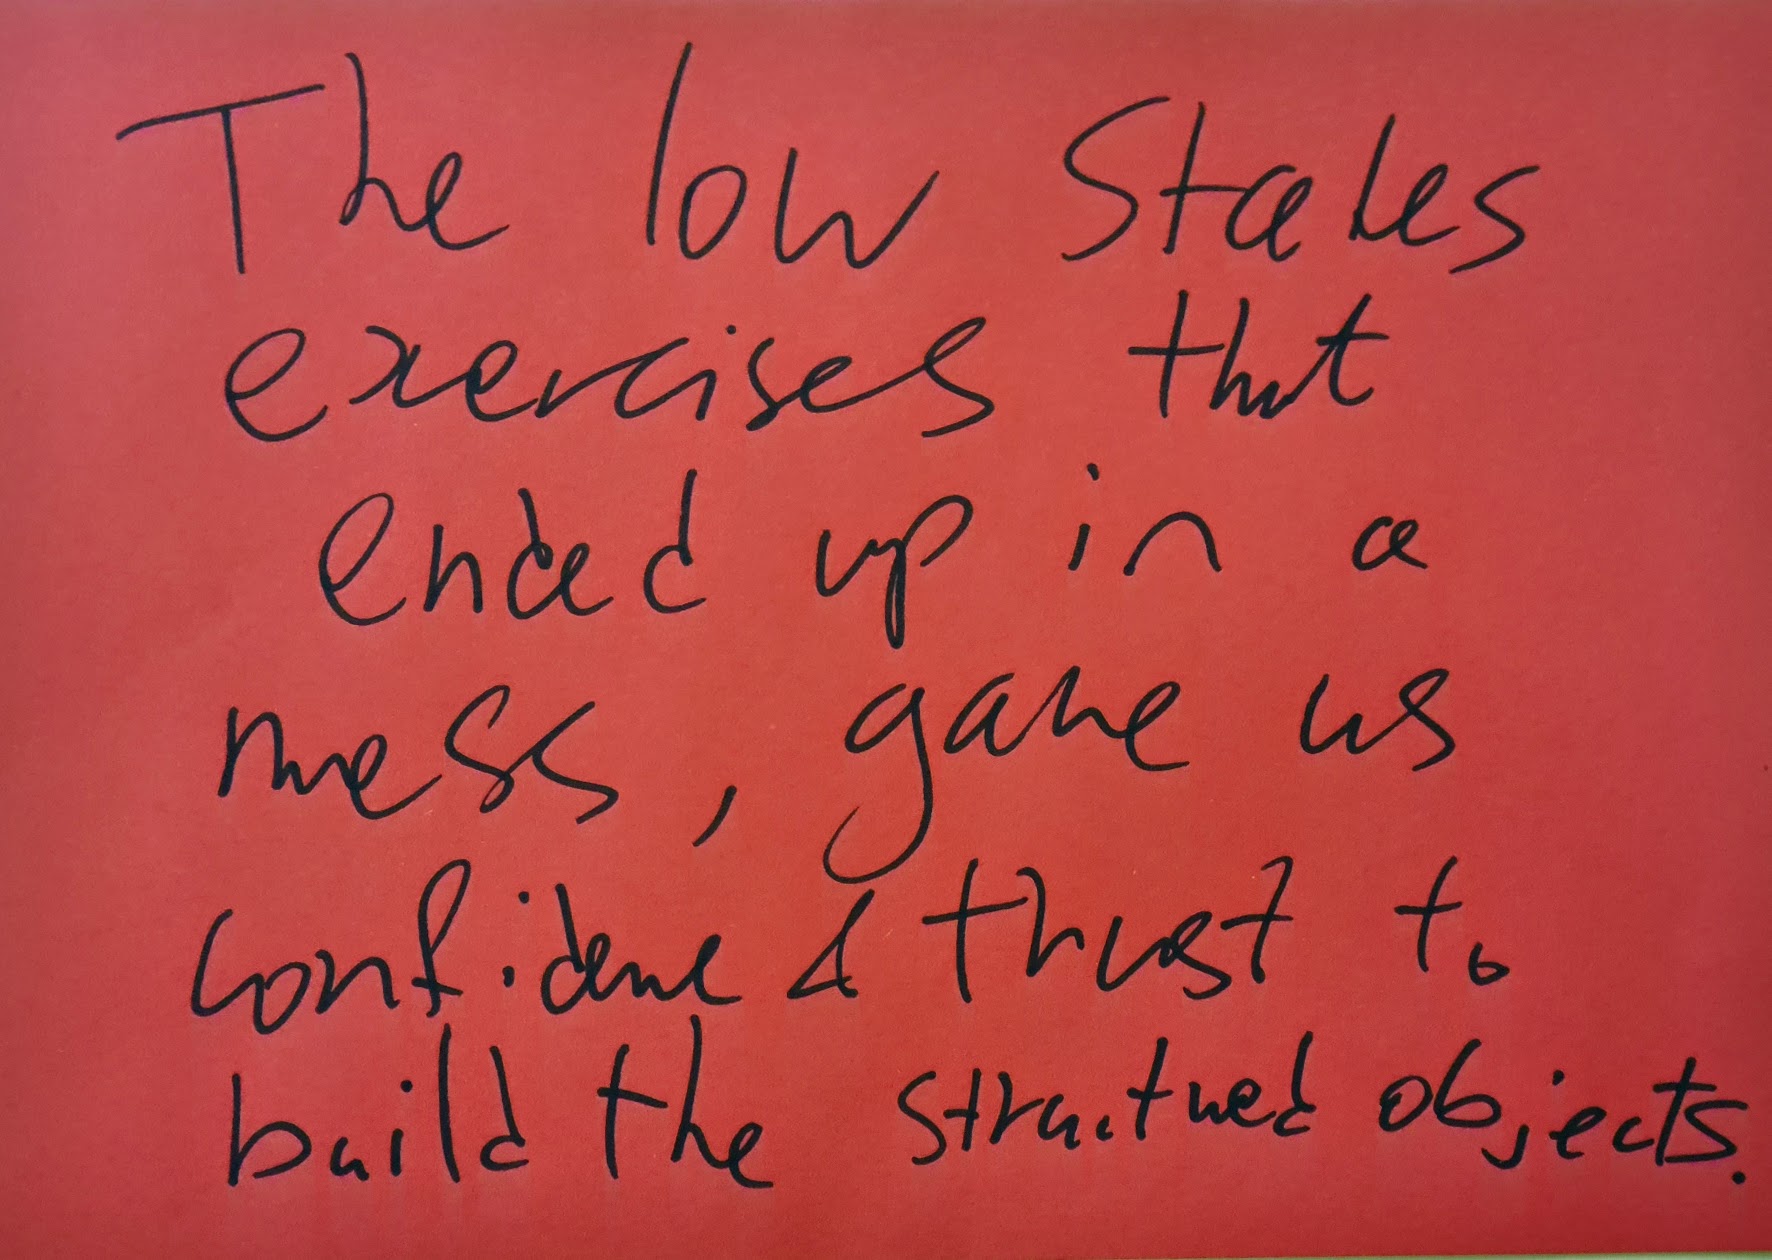 The low stakes
exercises that
ended up in a
mess, gave us
confidence & trust to
build the structured objects.